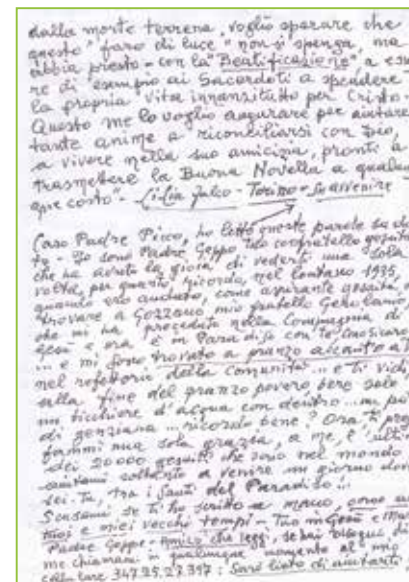 dalla morte terrena, voglio sperare che
questo "faro di luce" non si spenga, ma
abbia presto - con la "Beatificazione" a esse
re di "esempio ai Sacerdoti a spendere
la propria vita innanzitutto per Cristo -
Questo me lo voglio augurare per aiutare
tante anime a riconciliarsi con Dio,
a vivere nella sua amicizia, pronte a
trasmettere la Buona Novella a qualun
que costo" - Falco - Torino - Su avvenire
Caro Padre Picco, ho letto queste parole su di
te - Io sono Padre Geppo tuo confratello gesuita
che ha avuto la gioia, di vederti una sola
volta, per quanto ricordo, nel lontano 1935,
quando ero andato, come aspirante gesuita, a
trovare a Gozzano mio fratello Gerolamo
che mi ha preceduto nella Compagnia di
Gesù e ora è in Paradiso con Te
... e mi sono trovato a pranzo accanto a Te
nel refettorio della comunità ... e ti vidi
alla fine del pranzo povero bere solo
un bicchiere d'acqua con dentro ... un po'
di genziana ... ricordo bene? Ora ti prego
fammi una sola grazia, a me, l'ultimo
dei 20000 gesuiti che sono nel mondo
aiutami soltanto a venire un giorno dove
sei Tu, tra i Santi del Paradiso!..
Scusami se ti ho scritto a mano, come ai
tuoi e miei vecchi tempi - Tuo in Gesù e Maria
Padre Geppo - Amico che leggi, se hai bisogno di
me chiamami in qualunque momento al mio
cellulare 347.25.27.397: Sarò lieto di aiutarti.